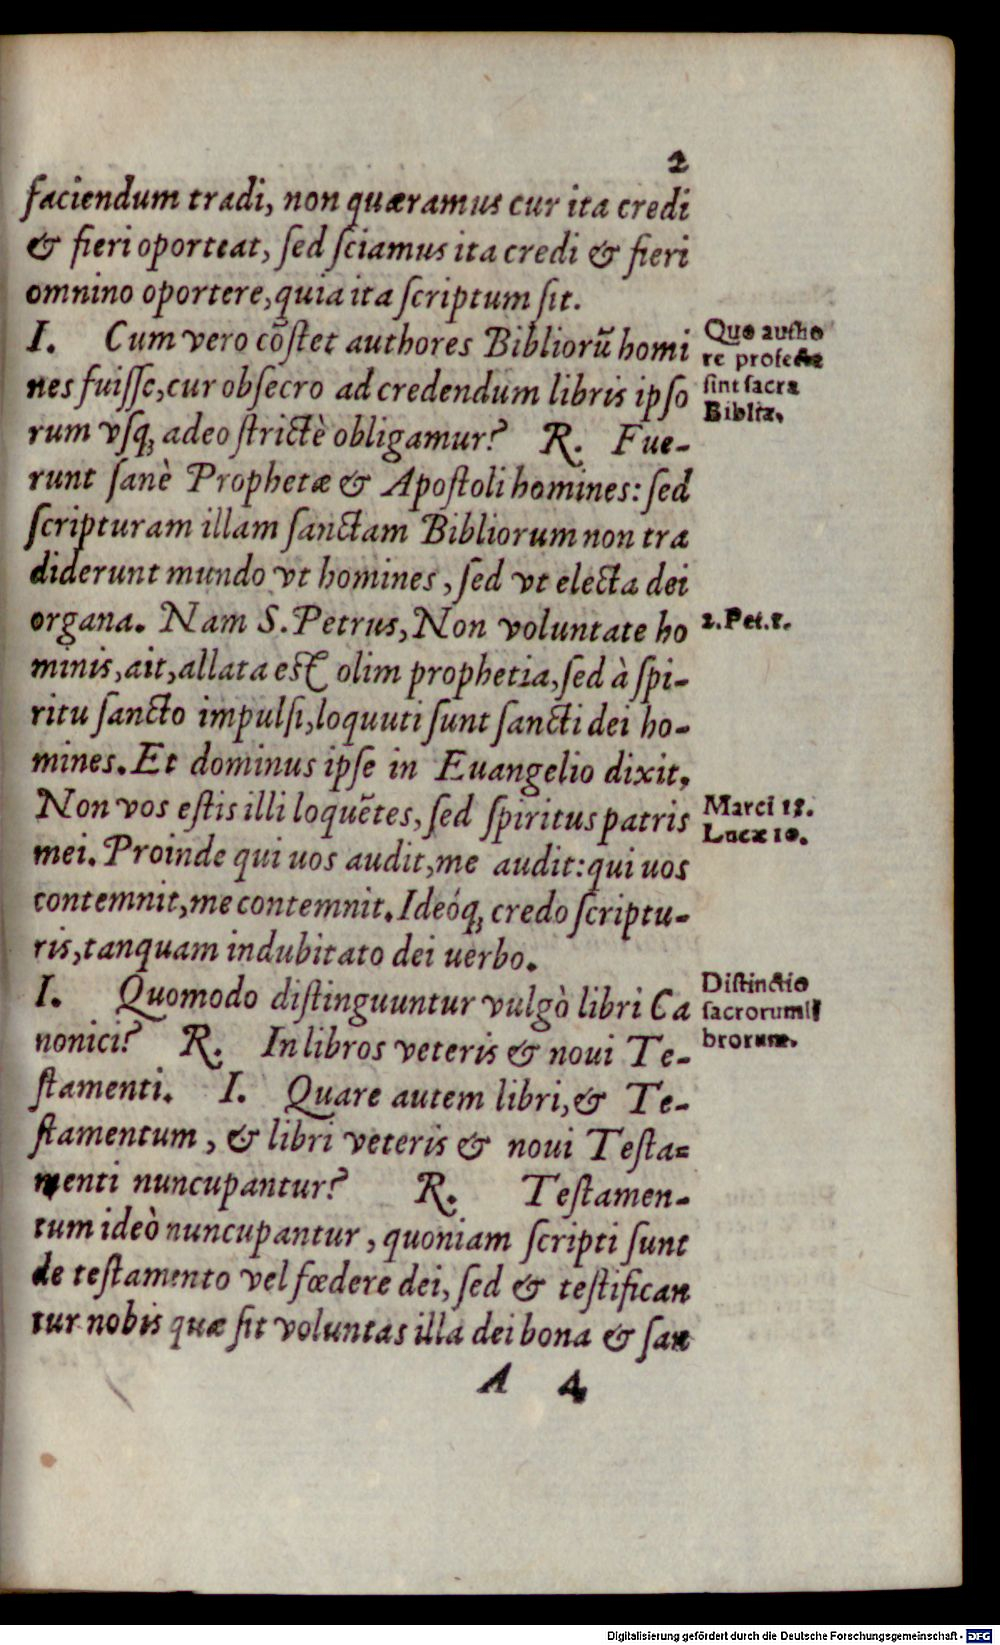 2
faciendum tradi, non quæramus cur ita credi
& fieri oporteat, ſed ſciamus ita credi & fieri
omnino oportere, quia ita ſcriptum ſit.
I. Cum vero cõſtet authores Bibliorũ homi
nes fuiſſe, cur obſecro ad credendum libris ipſo
rum vſq; adeo ſtrictè obligamur? R. Fue-
runt ſanè Prophetæ & Apoſtoli homines: ſed
ſcripturam illam ſanctam Bibliorum non tra
diderunt mundo vt homines, ſed vt electa dei
organa. Nam S. Petrus, Non voluntate ho
minis, ait, allata est olim prophetia, ſed à ſpi-
ritu ſancto impulſi, loquuti ſunt ſancti dei ho-
mines. Et dominus ipſe in Euangelio dixit,
Non vos eſtis illi loquẽtes, ſed ſpiritus patris
mei. Proinde qui uos audit, me audit: qui uos
contemnit, me contemnit. Ideóq; credo ſcriptu-
ris, tanquam indubitato dei uerbo.
I. Quomodo diſtinguuntur vulgò libri Ca
nonici? R. In libros veteris & noui Te-
ſtamenti. I. Quare autem libri, & Te-
ſtamentum, & libri veteris & noui Teſta-
menti nuncupantur? R. Teſtamen-
tum ideò nuncupantur, quoniam ſcripti ſunt
de teſtamento vel fœdere dei, ſed & teſtifican
tur nobis quæ ſit voluntas illa dei bona & ſan
A 4
Quo autho
re profecta
ſint ſacra
Biblia.
2. Pet. 1.
Marci 13.
Lucæ 10.
Diſtinctio
ſacrorum li
brorum.
Digitalisierung gefördert durch die Deutsche Forschungsgemeinschaft - DFG